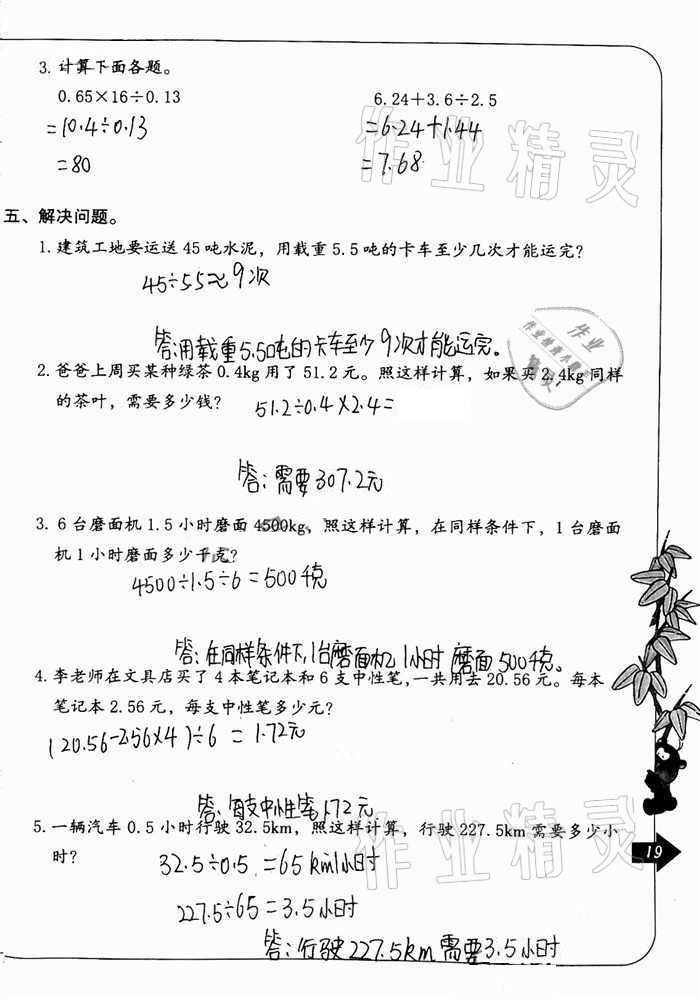 3. 计算下面各题。
0.65×16÷0.13    6.24+3.6÷2.5
=10.4÷0.13    =6.24+1.44
=80    =7.68
五、解决问题。
1. 建筑工地要运送 45 吨水泥，用载重 5.5 吨的卡车至少几次才能运完？
45÷5.5≈9次
答:用载重5.5吨的卡车至少9次才能运完。
2. 爸爸上周买某种绿茶 0.4kg 用了 51.2 元。照这样计算，如果买 2.4kg 同样
的茶叶，需要多少钱？ 51.2÷0.4×2.4=
答:需要307.2元
3. 6 台磨面机 1.5 小时磨面 4500kg，照这样计算，在同样条件下，1 台磨面
机 1 小时磨面多少千克？
4500÷1.5÷6=500千克
答:在同样条件下,1台磨面机1小时磨面500千克。
4. 李老师在文具店买了 4 本笔记本和 6 支中性笔，一共用去 20.56 元。每本
笔记本 2.56 元，每支中性笔多少元？
(20.56-2.56×4)÷6=1.72元
答:每支中性笔1.72元
5. 一辆汽车 0.5 小时行驶 32.5km，照这样计算，行驶 227.5km 需要多少小
时？
32.5÷0.5=65km/小时
227.5÷65=3.5小时
答:行驶227.5km需要3.5小时
19
作业精灵
作业精灵
作业